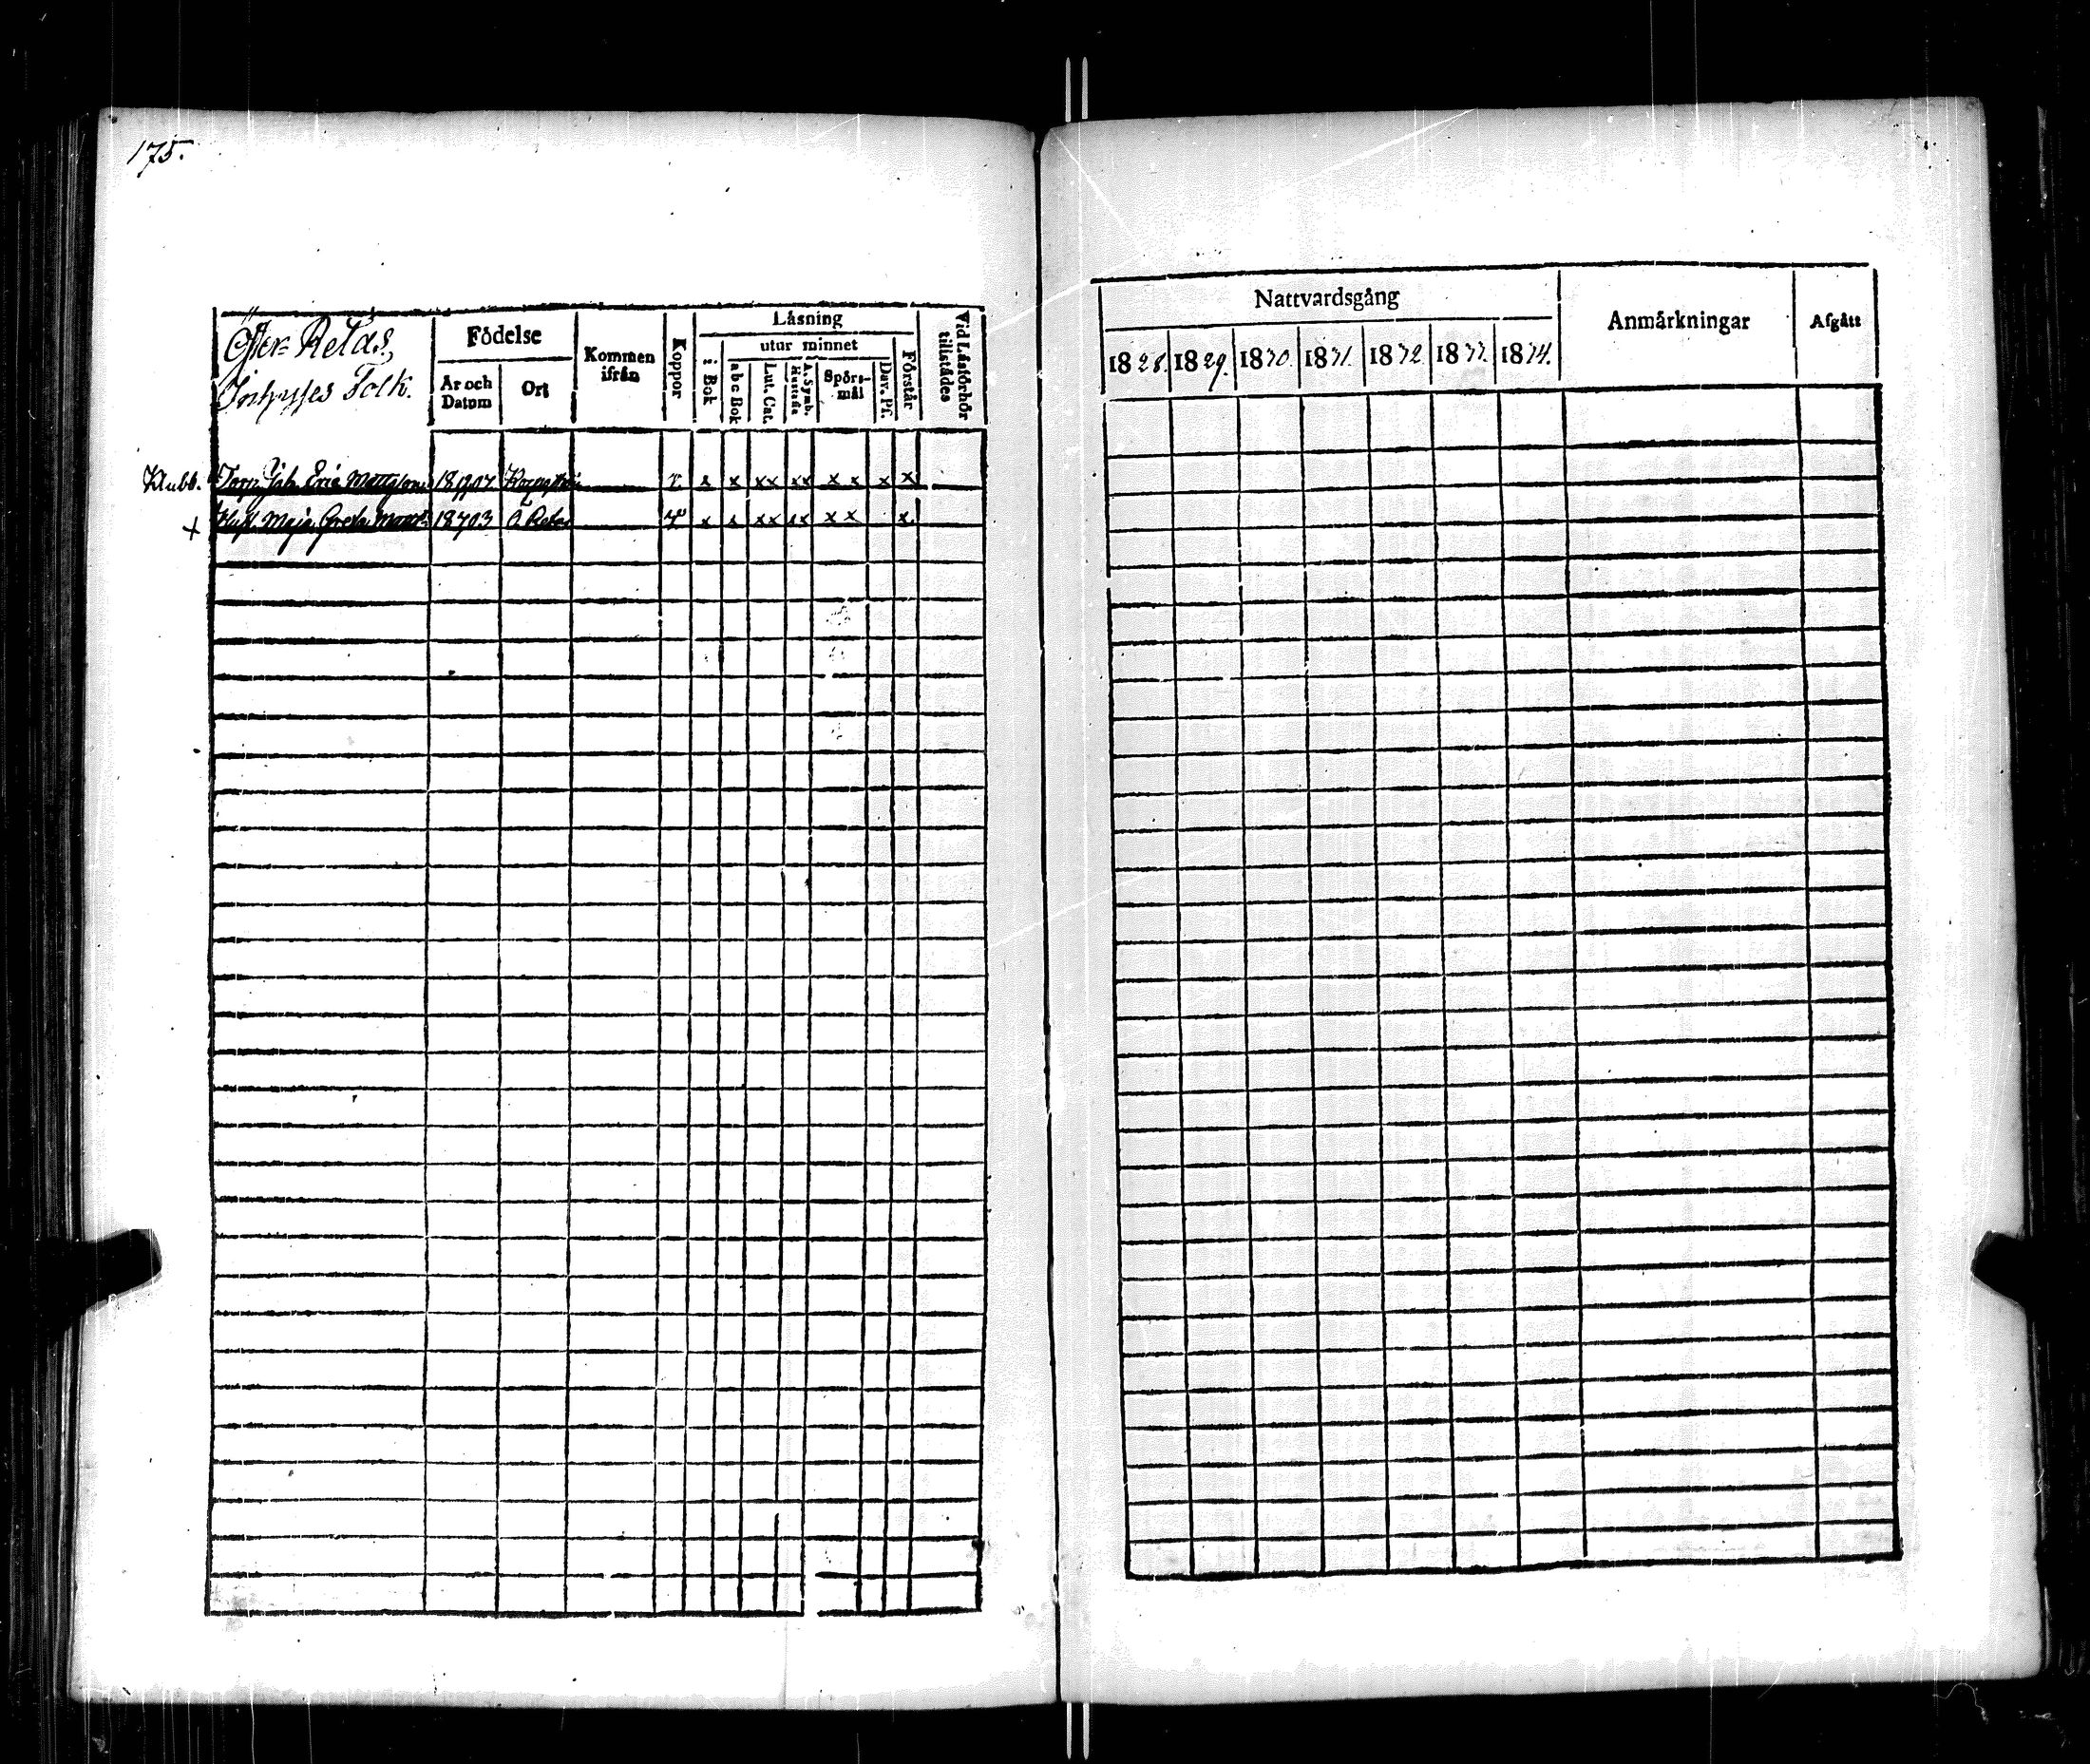 175.
Öster Retais,
Inhysses Folk.
Födelse
År och Datum
Ort
Kommen ifrån
Koppor
Läsning
i Bok
utur minnet
abc Bok
Lut. Cat.
A. Symb. Hustafla
Spörs-mål
Dav. Ps.
Förstår
Vid Läsförhör tillstädes
Klubb. Torp. Joh. Eric Mattsson x x xx xx x x x x
+ Hust. Maja Greta 1803 Ö Retais x x xx xx x x x
Nattvardsgång
1828. 1829. 1830. 1831. 1832. 1833. 1834.
Anmärkningar
Afgått